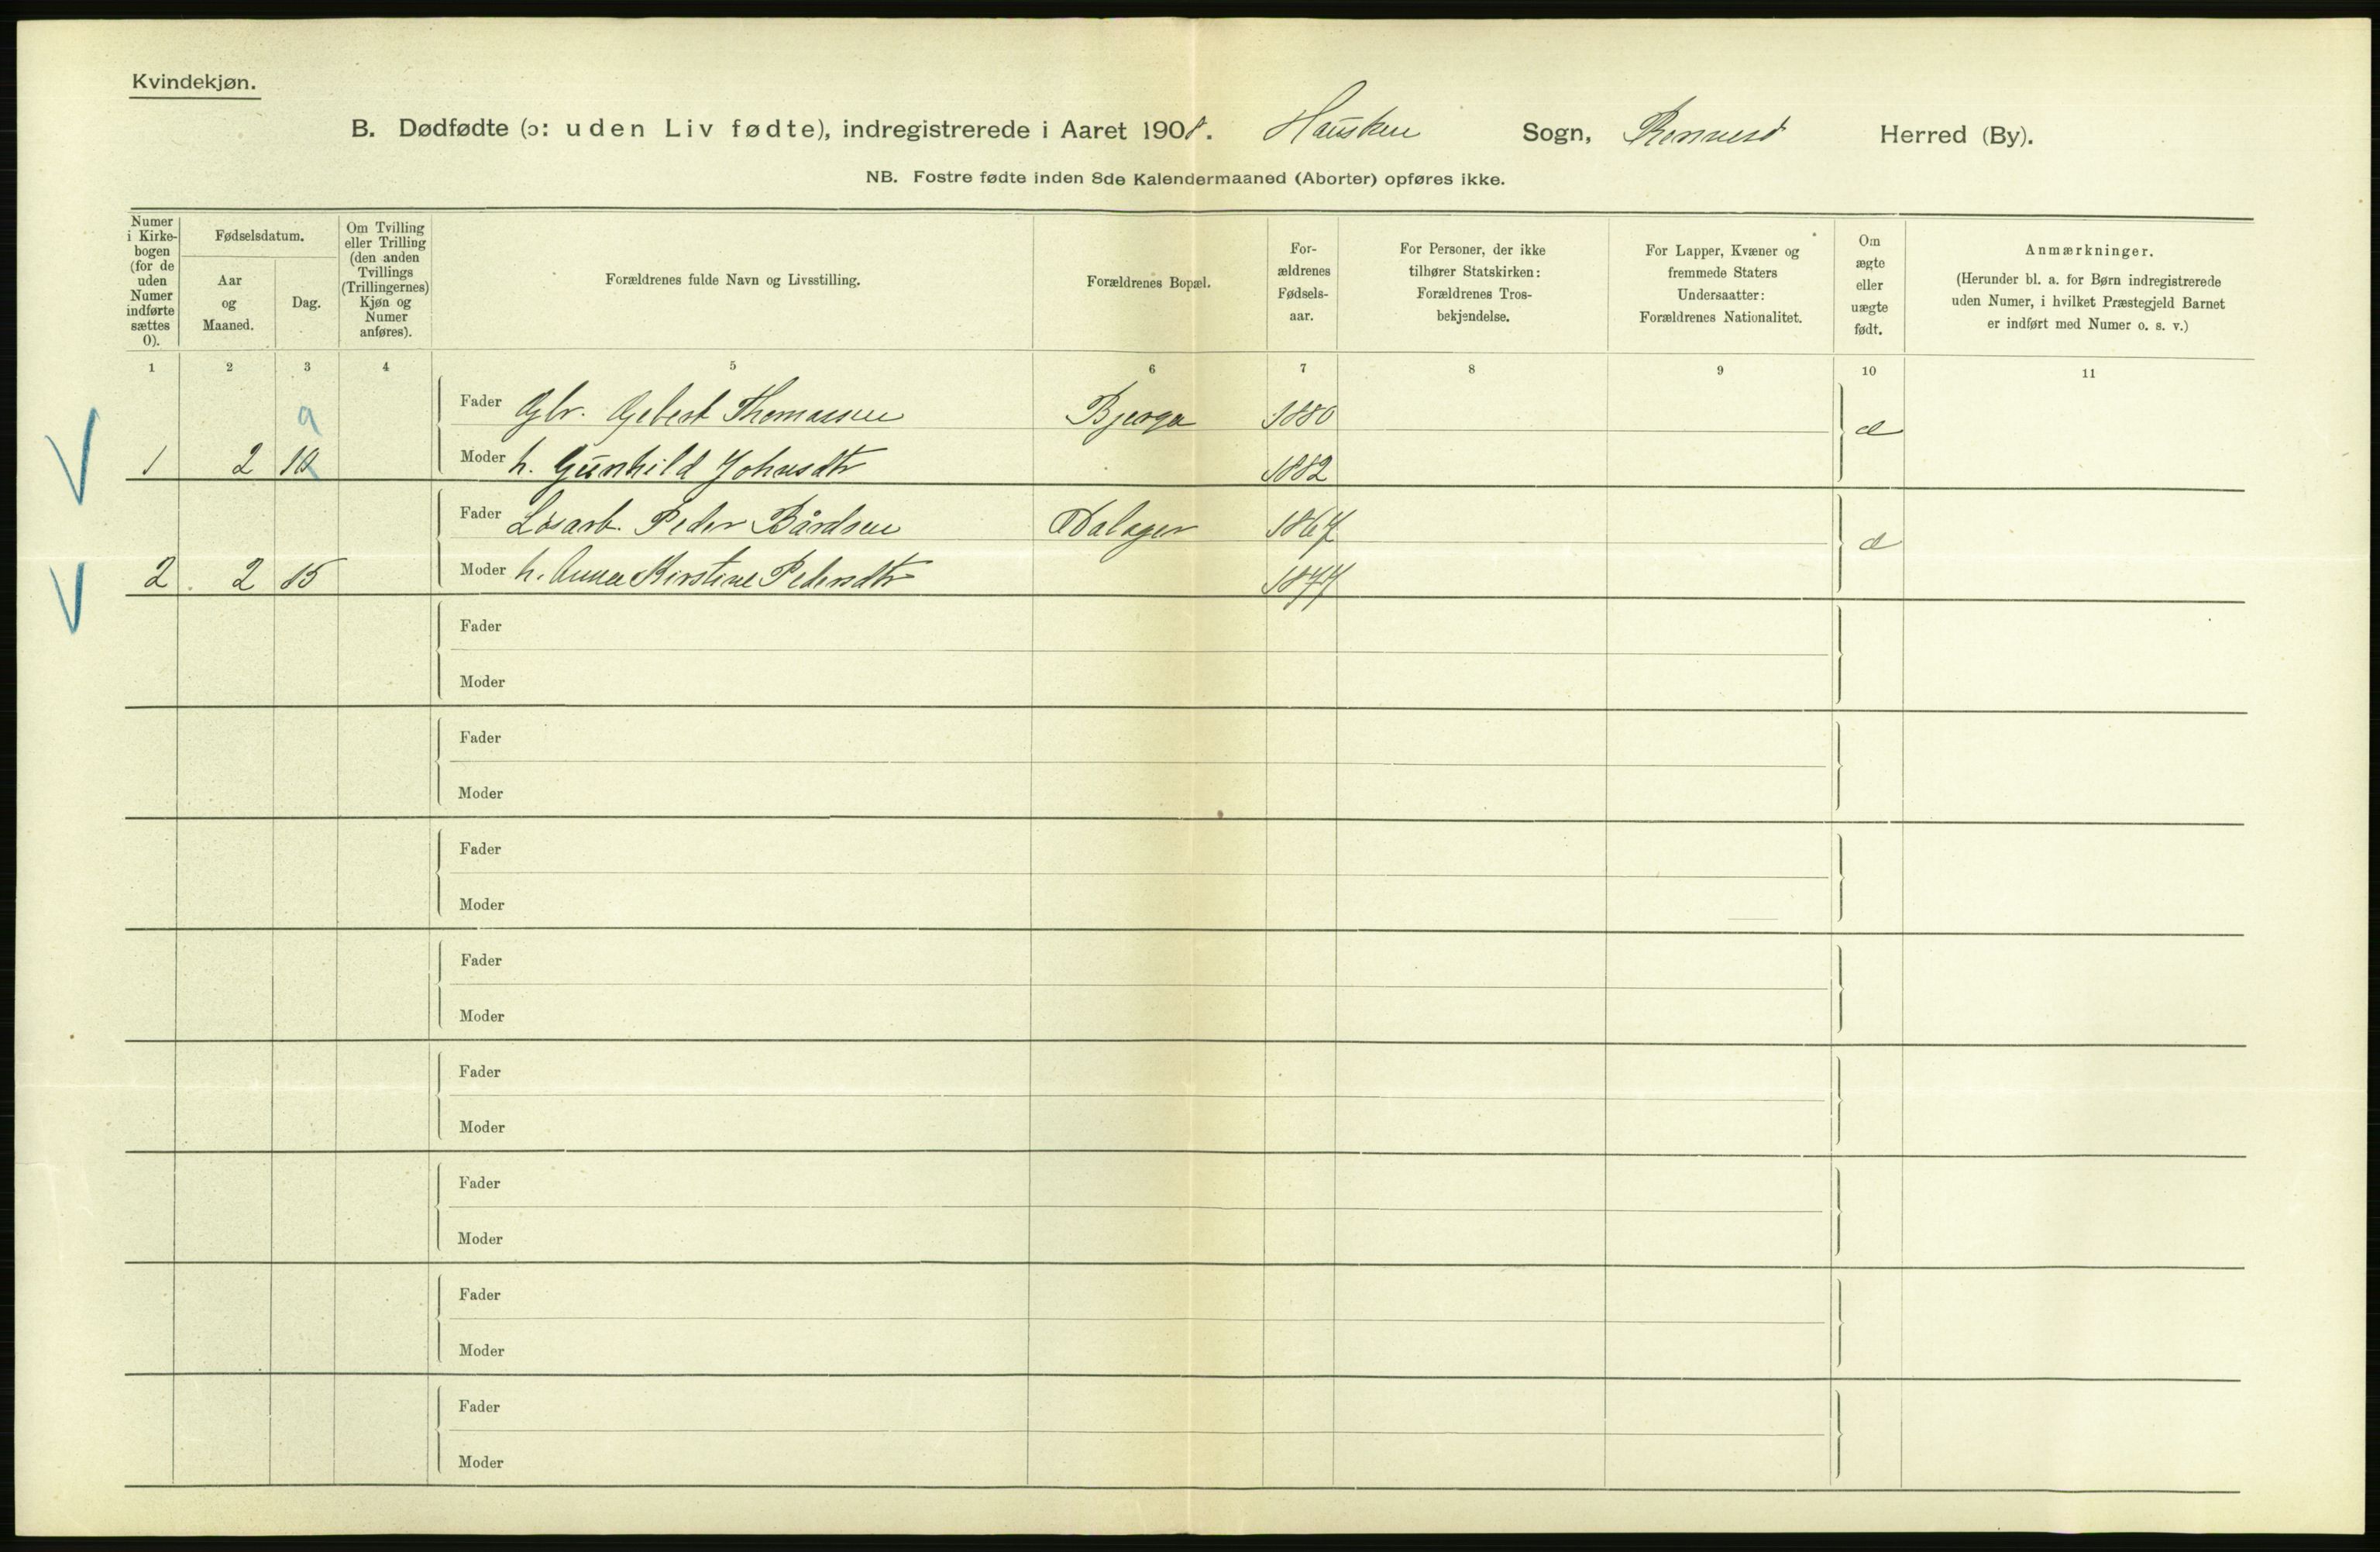 Kvindekjøn.
B. Dødfødte (ɔ: uden Liv fødte), indregistrerede i Aaret 1908. Hausken Sogn, Rennesø Herred (By).
NB. Fostre fødte inden 8de Kalendermaaned (Aborter) opføres ikke.
Numer i Kirke-bogen (for de uden Numer indførte sættes 0).
Fødselsdatum.
Aar og Maaned.
Dag.
Om Tvilling eller Trilling (den anden Tvillings (Trillingernes) Kjøn og Numer anføres).
Forældrenes fulde Navn og Livsstilling.
Forældrenes Bopæl.
For-ældrenes Fødsels-aar.
For Personer, der ikke tilhører Statskirken: Forældrenes Tros-bekjendelse.
For Lapper, Kvæner og fremmede Staters Undersaatter: Forældrenes Nationalitet.
Om ægte eller uægte født.
Anmærkninger. (Herunder bl. a. for Børn indregistrerede uden Numer, i hvilket Præstegjeld Barnet er indført med Numer o. s. v.)
1 2 3 4 5 6 7 8 9 10 11
Fader Gbr. Gjebert Thomassen Bjerga 1880 æ
9
1 2 10 Moder h. Gunhild Johnsdtr 1882
Fader Løsarb. Peder Bårdsen Dalager 1867 æ
2 2 15 Moder h. Anna Kirstine Pedersdtr 1877
Fader
Moder
Fader
Moder
Fader
Moder
Fader
Moder
Fader
Moder
Fader
Moder
Fader
Moder
Fader
Moder